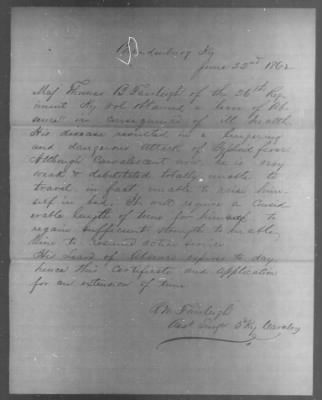 Brandenburg Ky
June 22nd 1862
Maj Thomas B Fairleigh of the 26th Regi
ment Ky Vol obtained a leave of Ab
sence in consequence of Ill health
His disease resulted in a lingering
and dangerous attack of Typhoid fever
Although Convalescent now he is very
weak & debilitated totally unable to
travel in fact unable to raise him
self in bed. It will require a Consid
erable length of time for himself to
regain sufficient strength to enable
him to resume active service
His Leave of Absence expires to day
hence this Certificate and Application
for an extension of time
R M Fairleigh
Asst Surgn 3d Ky Cavalry